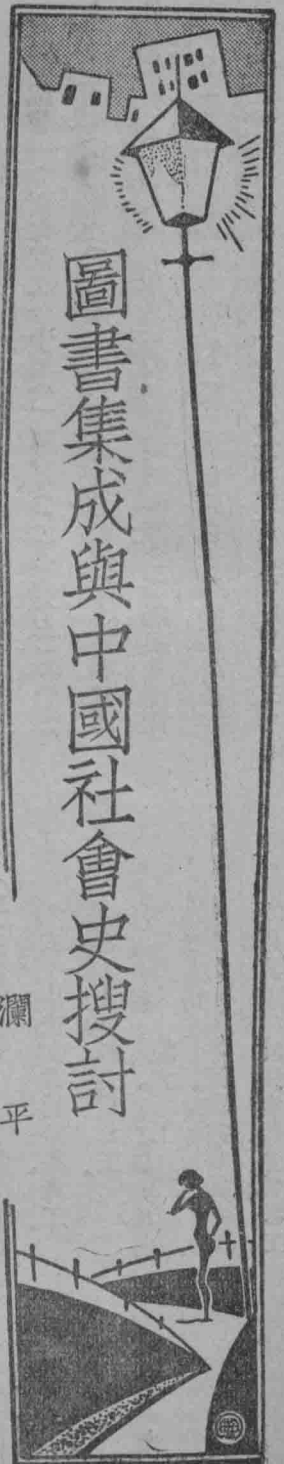 圖書集成與中國社會史搜討
瀾平